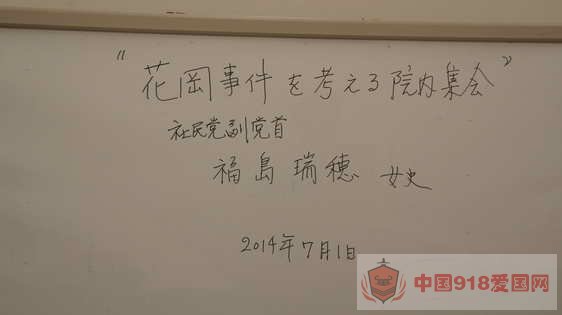 "花岡事件を考える院内集会"
社民党副党首
福島瑞穂 女史
2014年7月1日
中国918爱国网